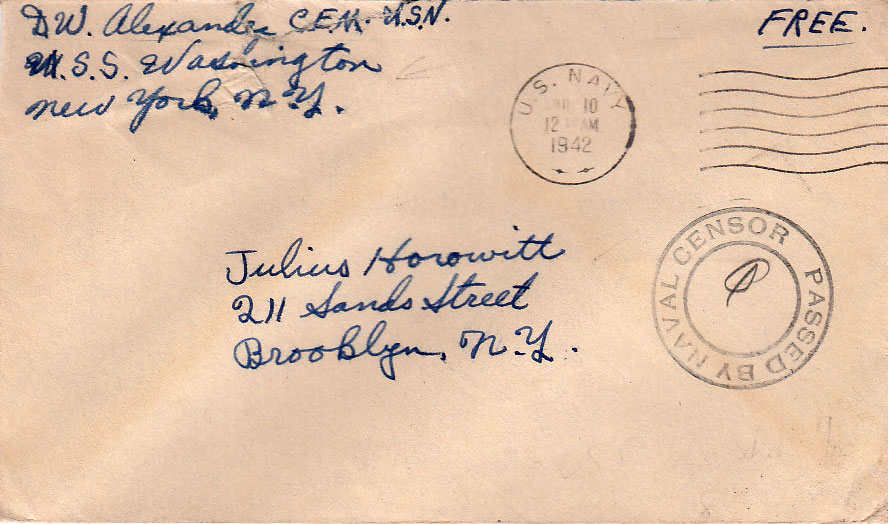 D.W. Alexander C.E.M. U.S.N.
U.S.S. Washington
New York, N.Y.
FREE.
U.S. NAVY
10
12 AM
1942
PASSED BY NAVAL CENSOR
Julius Horowitt
211 Sands Street
Brooklyn, N.Y.